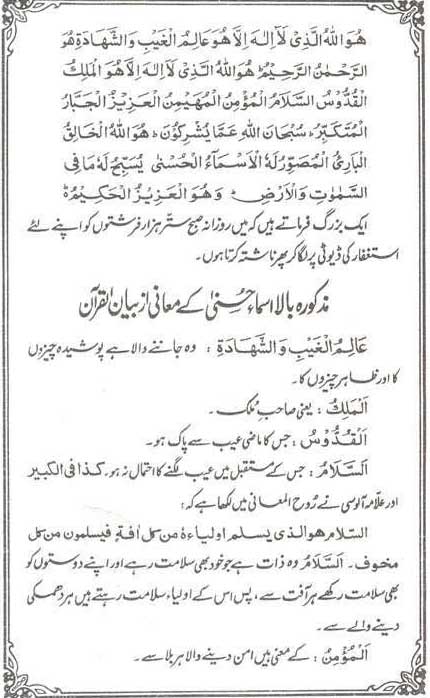 هُوَ اللهُ الَّذِیْ لَآ اِلٰهَ اِلَّا هُوَ عَالِمُ الْغَیْبِ وَالشَّهَادَةِ هُوَ
الرَّحْمٰنُ الرَّحِیْمُ ؕ هُوَ اللهُ الَّذِیْ لَآ اِلٰهَ اِلَّا هُوَ اَلْمَلِكُ
الْقُدُّوْسُ السَّلَامُ الْمُؤْمِنُ الْمُهَیْمِنُ الْعَزِیْزُ الْجَبَّارُ
الْمُتَكَبِّرُ ؕ سُبْحَانَ اللهِ عَمَّا یُشْرِكُوْنَ ؕ هُوَ اللهُ الْخَالِقُ
الْبَارِیُٔ الْمُصَوِّرُ لَهُ الْاَسْمَآءُ الْحُسْنٰی یُسَبِّحُ لَهٗ مَا فِی
السَّمٰوٰتِ وَالْاَرْضِ ؕ وَهُوَ الْعَزِیْزُ الْحَكِیْمُ ؕ
ایک بزرگ فرماتے ہیں کہ میں روزانہ صبح ستّر ہزار فرشتوں کو اپنے لئے
استغفار کی ڈیوٹی پر لگا کر پھر ناشتہ کرتا ہوں۔
مذکورہ بالا اسماء حُسنیٰ کے معانی از بیان القرآن
عَالِمُ الْغَیْبِ وَالشَّهَادَةِ : وہ جاننے والا ہے پوشیدہ چیزوں
کا اور ظاہر چیزوں کا۔
اَلْمَلِكُ : یعنی صاحبِ مُلک۔
اَلْقُدُّوْسُ : جس کا ماضی عیب سے پاک ہو۔
اَلسَّلَامُ : جس کے مستقبل میں عیب لگنے کا احتمال نہ ہو۔ كذا فی الكبیر
اور علّامہ آلوسی نے رُوح المعانی میں لکھا ہے کہ:
السّلام هو الذی یسلم اولیاءہٗ من كل اٰفةٍ فیسلمون من كل
مخوف۔ اَلسَّلَامُ وہ ذات ہے جو خود بھی سلامت رہے اور اپنے دوستوں کو
بھی سلامت رکھے ہر آفت سے، پس اس کے اولیاء سلامت رہتے ہیں ہر دھمکی
دینے والے سے۔
اَلْمُؤْمِنُ : کے معنی ہیں امن دینے والا ہر بلا سے۔